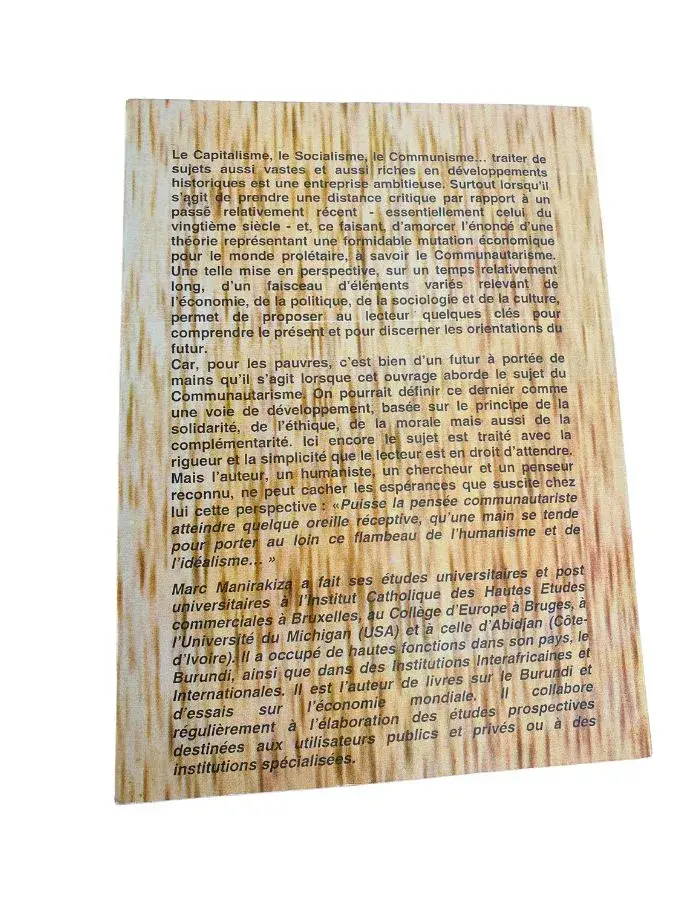 Le Capitalisme, le Socialisme, le Communisme... traiter de
sujets aussi vastes et aussi riches en développements
historiques est une entreprise ambitieuse. Surtout lorsqu'il
s'agit de prendre une distance critique par rapport à un
passé relativement récent - essentiellement celui du
vingtième siècle - et, ce faisant, d'amorcer l'énoncé d'une
théorie représentant une formidable mutation économique
pour le monde prolétaire, à savoir le Communautarisme.
Une telle mise en perspective, sur un temps relativement
long, d'un faisceau d'éléments variés relevant de
l'économie, de la politique, de la sociologie et de la culture,
permet de proposer au lecteur quelques clés pour
comprendre le présent et pour discerner les orientations du
futur.
Car, pour les pauvres, c'est bien d'un futur à portée de
mains qu'il s'agit lorsque cet ouvrage aborde le sujet du
Communautarisme. On pourrait définir ce dernier comme
une voie de développement, basée sur le principe de la
solidarité, de l'éthique, de la morale mais aussi de la
complémentarité. Ici encore le sujet est traité avec la
rigueur et la simplicité que le lecteur est en droit d'attendre.
Mais l'auteur, un humaniste, un chercheur et un penseur
reconnu, ne peut cacher les espérances que suscite chez
lui cette perspective : «Puisse la pensée communautariste
atteindre quelque oreille réceptive, qu'une main se tende
pour porter au loin ce flambeau de l'humanisme et de
l'idéalisme... »
Marc Manirakiza a fait ses études universitaires et post
universitaires à l'Institut Catholique des Hautes Etudes
commerciales à Bruxelles, au Collège d'Europe à Bruges, à
l'Université du Michigan (USA) et à celle d'Abidjan (Côte-
d'Ivoire). Il a occupé de hautes fonctions dans son pays, le
Burundi, ainsi que dans des Institutions Interafricaines et
Internationales. Il est l'auteur de livres sur le Burundi et
d'essais sur l'économie mondiale. Il collabore
régulièrement à l'élaboration des études prospectives
destinées aux utilisateurs publics et privés ou à des
institutions spécialisées.